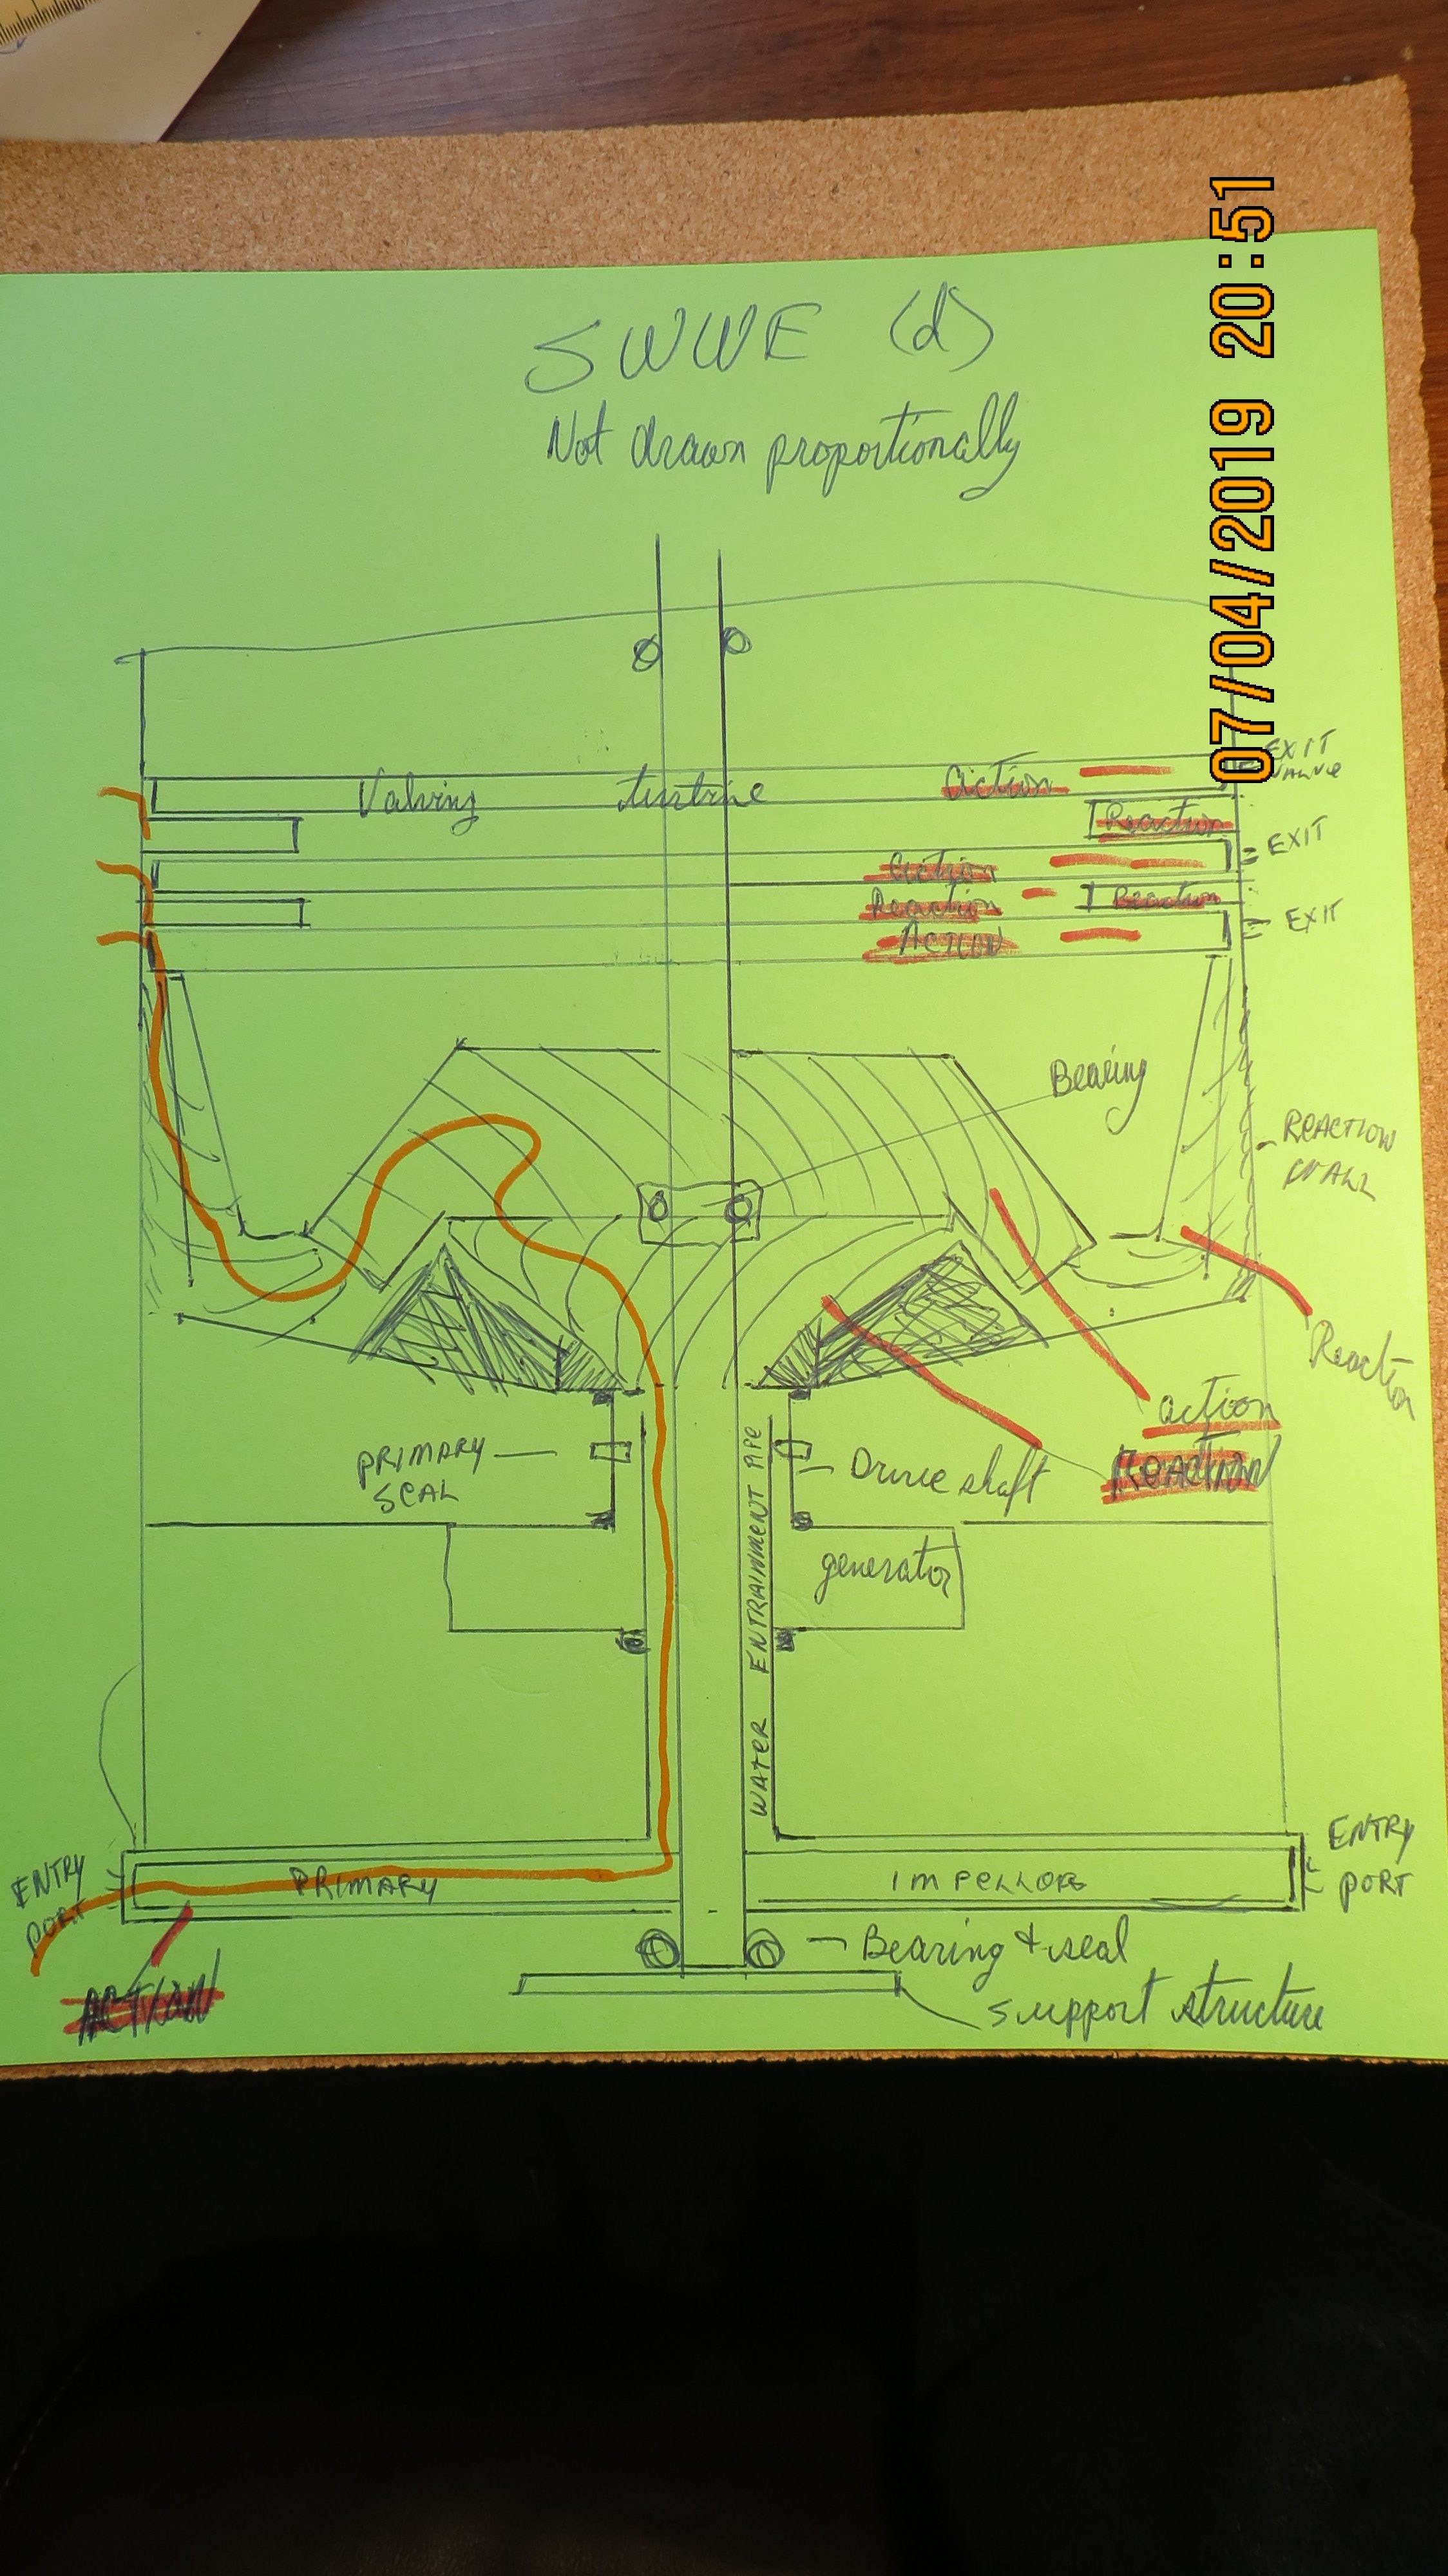 SWWE (d)
Not drawn proportionally
07/04/2019 20:51
EXIT
Valving turbine action
Reaction
EXIT
action
Reaction Reaction
ACTION
EXIT
Bearing
REACTION
Reaction
action
REACTION
PRIMARY
SEAL
Drive shaft
generator
WATER ENTRAINMENT PIPE
ENTRY
PORT
PRIMARY
IMPELLORS
ENTRY
PORT
Bearing & seal
ACTION
support structure